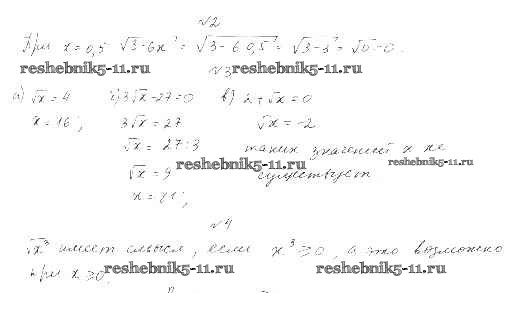 №2
При x=0,5 √3-6x² = √3-6·0,5² = √3-3² = √0=0.
reshebnik5-11.ru №3 reshebnik5-11.ru
а) √x=4 б) 3√x-27=0 в) 2+√x=0
x=16; 3√x=27 √x=-2
√x=27:3 таких значений x не
√x=9 существует
reshebnik5-11.ru reshebnik5-11.ru
x=81;
№4
√x³ имеет смысл, если x³≥0, а это возможно
при x≥0.
reshebnik5-11.ru reshebnik5-11.ru